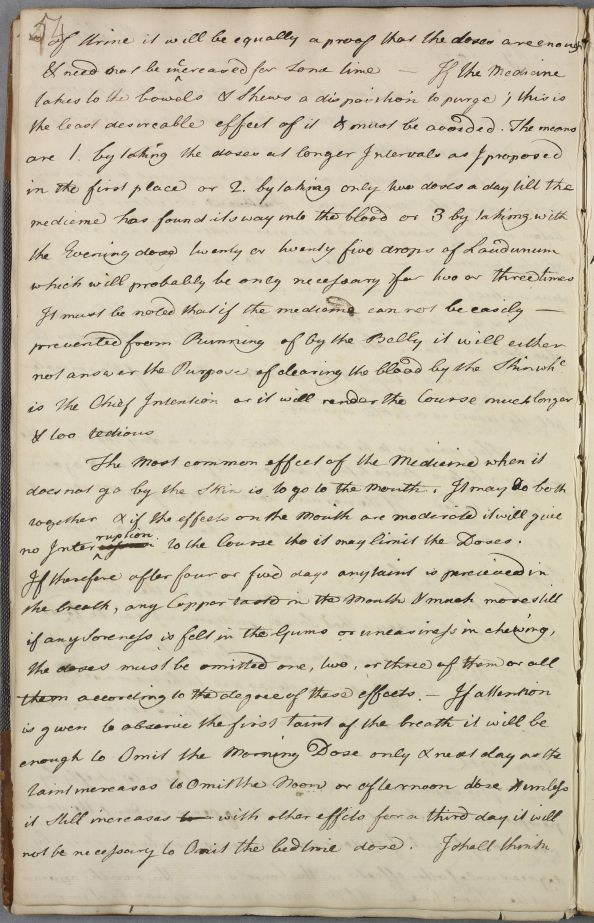 54
of Urine it will be equally a proof that the doses are enough
& need not be increased for some time — If the Medicine
takes to the bowels & shews a disposition to purge; this is
the least desireable effect of it & must be avoided. The means
are 1. by taking the doses at longer Intervals as I proposed
in the first place or 2. by taking only two doses a day till the
medicine has found its way into the blood or 3 by taking with
the Evening dose twenty or twenty five drops of Laudunum
which will probably be only necessary for two or three times
It must be noted that if the medicine can not be easily —
prevented from Running of by the Belly it will either
not answer the Purpose of clearing the blood by the Skin whc
is the Chief Intention or it will render the Course much longer
& too tedious
The most common effect of the Medicine when it
does not go by the Skin is to go to the Mouth. It may do both
together & if the effects on the Mouth are moderate it will give
no Interruption to the Course tho it may limit the Doses.
If therefore after four or five days any taint is percieved in
the breath, any Copper taste in the Mouth & much more still
if any Soreness is felt in the Gums or uneasiness in chewing,
the doses must be omitted one, two, or three of them or all
them according to the degree of these effects. — If attention
is given to observe the first taint of the breath it will be
enough to Omit the Morning Dose only & next day as the
taint increases to Omit the Noon or afternoon dose & unless
it still increases to with other effects for a third day it will
not be necessary to Omit the bedtime dose. I shall think